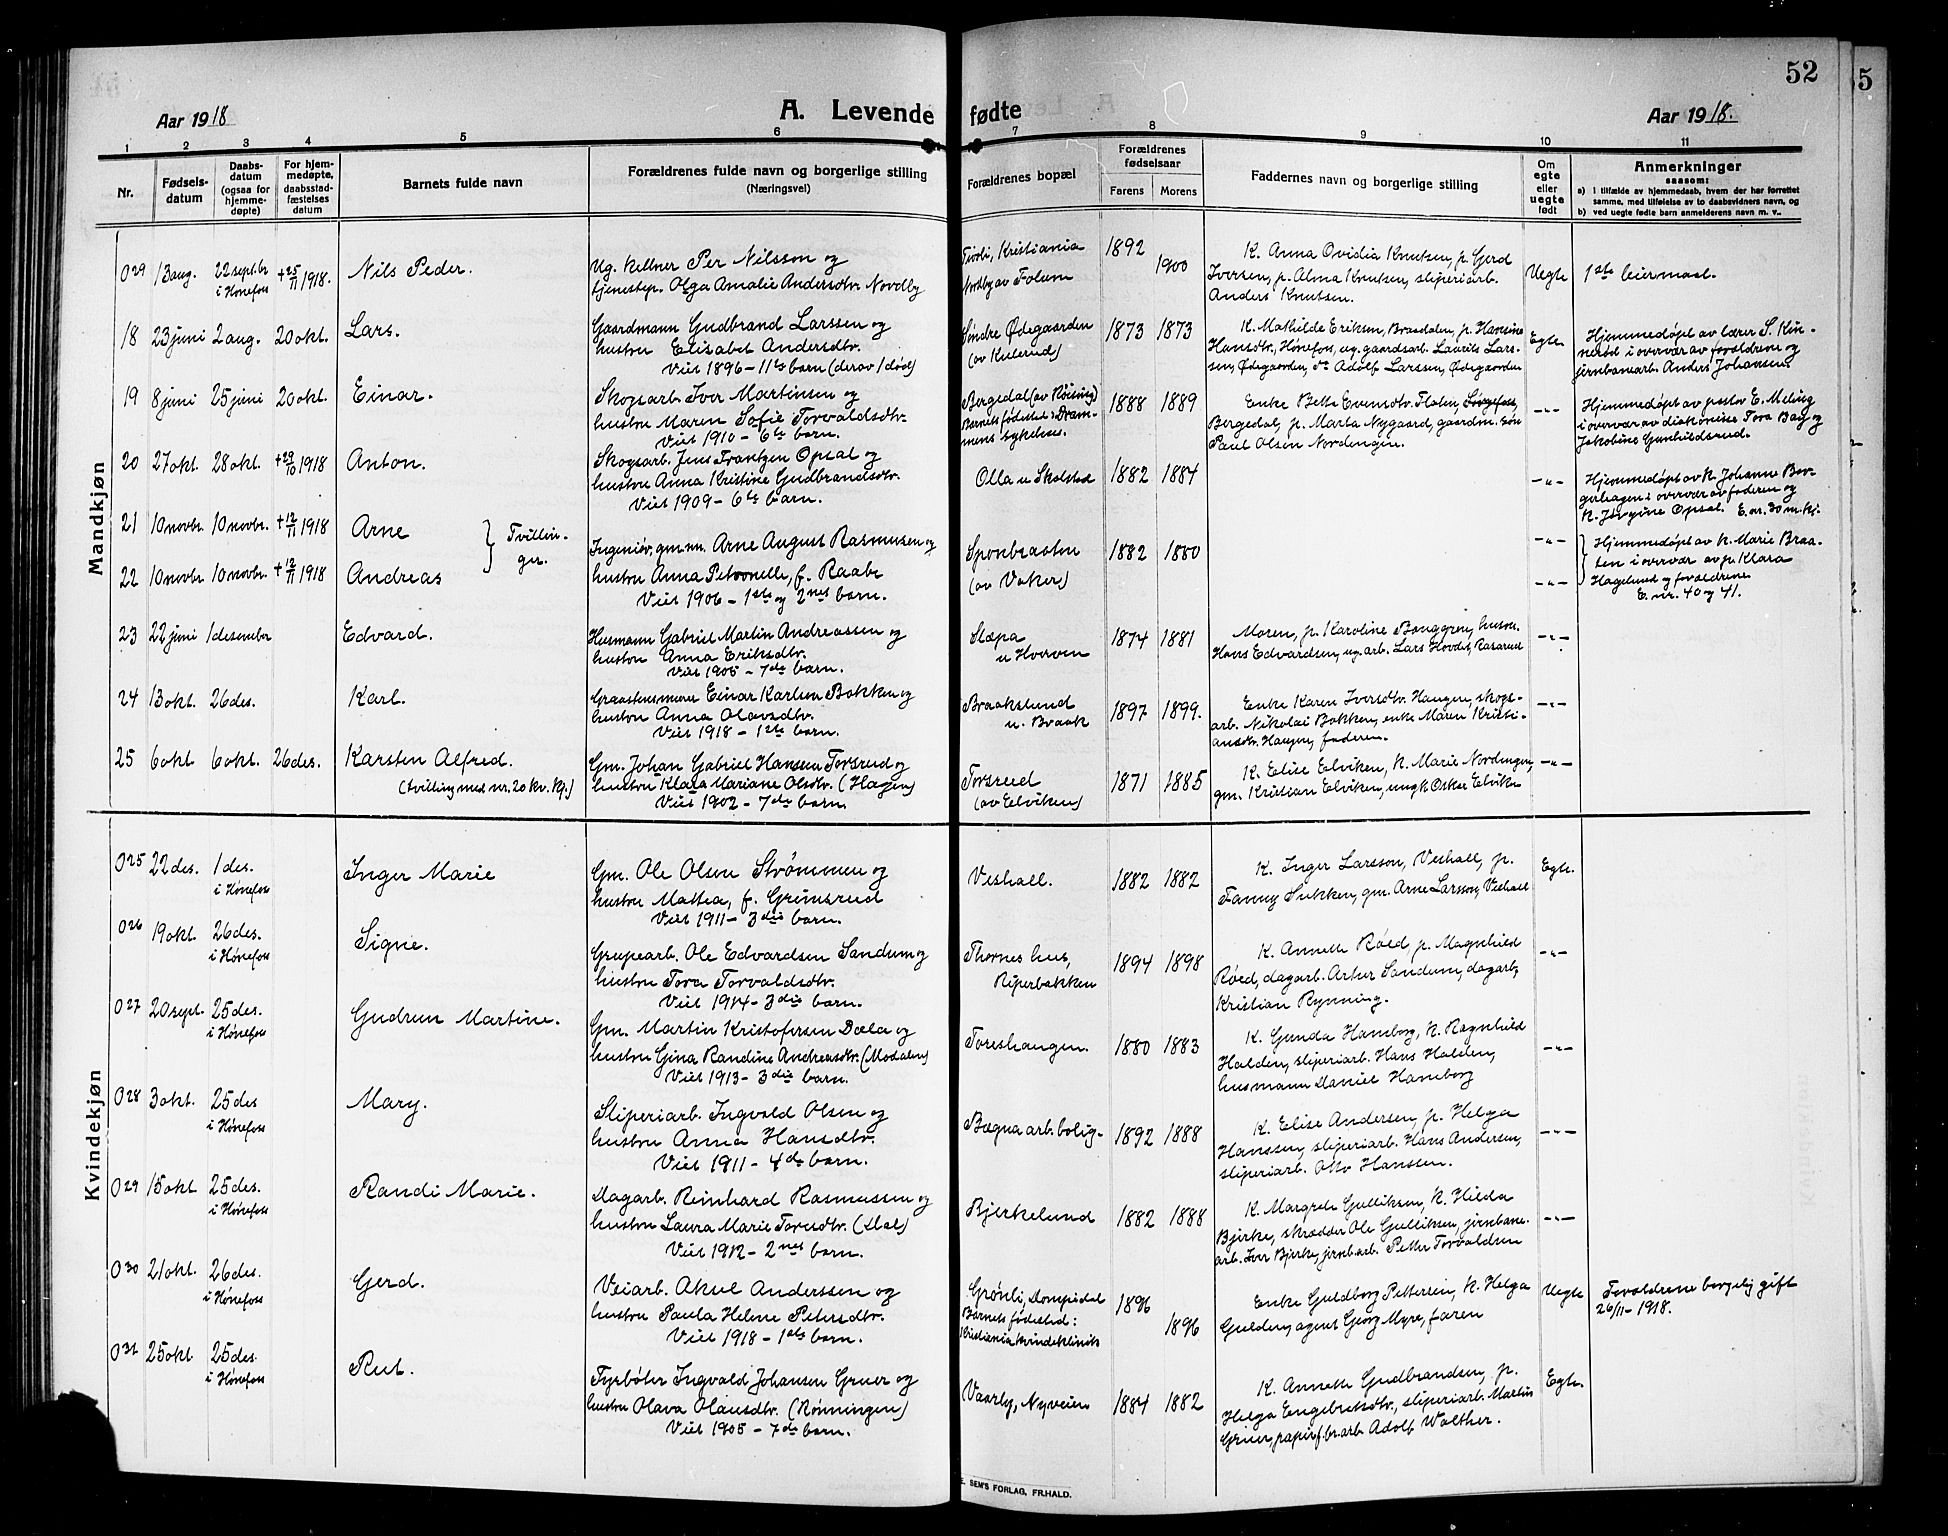 52
5
Aar 1918
A. Levende fødte
Aar 1918.
1 2 3 4 5 6 7 8 9 10 11
Nr.
Fødsels-
datum
Daabs-
datum
(ogsaa for
hjemme-
døpte)
For hjem-
medøpte,
daabsstad-
fæstelses
datum
Barnets fulde navn
Forældrenes fulde navn og borgerlige stilling
(Næringsvei)
Forældrenes bopæl
Forældrenes
fødselsaar
Farens Morens
Faddernes navn og borgerlige stilling
Om
egte
eller
uegte
født
Anmerkninger
saasom:
a) i tilfælde av hjemmedaab, hvem der har forrettet
samme, med tilføielse av to daabsvidners navn, og
b) ved uegte fødte barn anmelderens navn m. v..
Mandkjøn
029 13 aug. 22 septbr i Hønefoss +25/11 1918. Nils Peder.
Ug. kellner Per Nilsson og
tjenestep. Olga Amalie Andersdtr. Nordby
Tivoli, Kristiania
Nordby av Folum
1892 1900
K. Anna Ovidia Knutsen, p. Gerd
Iversen, p. Alma Knutsen, sliperiarb.
Anders Knutsen.
Uegte
1ste leiermaal.
18 23 juni 2 aug. 20 okt. Lars.
Gaardmann Gudbrand Larssen og
hustru Elisabet Andersdtr.
Viet 1896 - 11te barn (derav 1 død)
Søndre Ødegaarden
(av Kulerud)
1873 1873
K. Mathilde Eriksen, Braadalen, p. Hansine
Hansdtr., Hønefoss, ug. gaardsarb. Laurits Lars-
sen, Ødegaarden, do Adolf Larssen, Ødegaarden
Egte.
Hjemmedøpt av lærer S. Kin-
nerød i overvær av forældrene og
jernbanearb. Anders Johansen.
19 8 juni 25 juni 20 okt. Einar.
Skogsarb. Iver Martinsen og
hustru Maren Sofie Torvaldsdtr.
Viet 1910 - 6te barn.
Bergsdal (av Røising)
Barnets fødested: Dram-
mens sykehus.
1888 1889
Enke Bette Evensdtr. Flaten,
Bergsdal, p. Marta Nygaard, gaardm. søn
Paul Olsen Nordengen.
-"-
Hjemmedøpt av pastor E. Meling
i overvær av diakonisse Tora Bag og
Jakobine Gunhildsrud.
20 27 okt. 28 okt. +29/10 1918 Anton.
Skogsarb. Jens Frantzen Opsal og
hustru Anna Kristine Gudbrandsdtr.
Viet 1909 - 6te barn.
Olla u Skolstad
1882 1884
-"-
Hjemmedøpt av k. Johanne Ber-
gerhagen i overvær av faderen og
k. Jørgine Opsal. E. nr. 30 m. kj.
21 10 novbr. 10 novbr. +12/11 1918 Arne
Tvillin-
ger.
22 10 novbr 10 novbr. +12/11 1918 Andreas
Ingeniør, gm. nn. Arne August Rasmussen og
hustru Anna Petronelle, f. Raabe
Viet 1906 - 1ste og 2net barn.
Sponbraaten
(av Vaker)
1882 1880
-"-
-"-
Hjemmedøpt av k. Marie Braa-
ten i overvær av p. Klara
Hagelund og forældrene.
E. nr. 40 og 41.
23 22 juni 1 desember Edvard.
Husmann Gabriel Martin Andreassen og
hustru Anna Eriksdtr.
Viet 1905 - 7de barn.
Slæpa
u Hverven
1874 1881
Moren, p. Karoline Banggren, husm.
Hans Edvardsen, ug. arb. Lars Hovde, Rasarud
-"-
24 13 okt. 26 des. Karl.
Graastensmurer Einar Karlsen Bakken og
hustru Anna Olavsdtr.
Viet 1918 - 1ste barn.
Braakslund
u. Braak
1897 1899.
Enke Karen Iversdtr. Haugen, skogs-
arb. Nikolai Bakken, enke Maren Kristi-
ansdtr. Haugen, faderen.
-"-
25 6 okt 6 okt. 26 des. Karsten Alfred.
(tvilling med nr. 20 kv. kj.)
Gm. Johan Gabriel Hansen Torsrud og
hustru Klara Mariane Olsdtr. (Hagen)
Viet 1902 - 7de barn.
Torsrud
(av Elviken)
1871 1885
K. Elise Elviken, k. Marie Nordengen,
gm. Kristian Elviken, ungk Oskar Elviken
-"-
Kvindekjøn
025 22 des. 1 des. i Hønefoss Inger Marie
Gm. Ole Olsen Strømmen og
hustru Mattea, f. Grimsrud
Viet 1911 - 3die barn.
Veshall.
1882 1882
K. Inger Larsson, Veshall, p.
Fanny Sukken, gm. Arne Larsson, Veshall
Egte.
026 19 okt. 26 des. i Hønefoss Signe.
Grupearb. Ole Edvardsen Sandum og
hustru Tora Torvaldsdtr.
Viet 1914 - 3die barn.
Thornes hus,
Riperbakken
1894 1898
K. Annette Røed, p. Magnhild
Røed, dagarb. Artur Sandum, dagarb.
Kristian Rynning.
-"-
027 20 sept. 25 des. i Hønefoss Gudrun Martine.
Gm. Martin Kristofersen Dæla og
hustru Gina Randine Andreasdtr. (Modalen)
Viet 1913 - 3die barn.
Toreshaugen.
1880 1883
K. Gunda Hamborg, k. Ragnhild
Halden, sliperiarb. Hans Halden,
husmann Daniel Hamborg
-"-
028 3 okt. 25 des i Hønefoss Mary.
Sliperiarb. Ingvald Olsen og
hustru Anna Hansdtr.
Viet 1911 - 4de barn.
Bægna arb. bolig -
1892 1888
K. Elise Andersen, p. Helga
Hanssen, sliperiarb. Hans Andersen,
sliperiarb. Otto Hanssen.
-"-
029 15 okt 25 des. i Hønefoss Randi Marie.
Dagarb. Reinhard Rasmussen og
hustru Laura Marie Toresdtr. (Dal)
Viet 1912 - 2net barn.
Bjerkelund
1882 1888
K. Margrete Gulliksen, k. Hilda
Bjerke, skrædder Ole Gulliksen, jernbane-
arb. Iver Bjerke, jernb. arb. Petter Torvaldsen
-"-
030 21 okt. 26 des. i Hønefoss Gerd.
Veiarb. Aksel Anderssen og
hustru Paula Helene Petersdtr.
Viet 1918 - 1ste barn.
Grønli, Dompidal
Barnets fødested:
Kristiania kvindeklinik
1896 1896
Enke Guldborg Pettersen, k. Helga
Gulden, agent Georg Myre, faren
Uegte
Forældrene borgelig gift
26/11-1918.
031 25 okt 25 des. i Hønefoss Rut.
Fyrbøter Ingvald Johansen Gruer og
hustru Olava Olausdtr. (Rønningen)
Viet 1905 - 7de barn.
Vaarby, Nyveien
1884 1882
K. Annette Gudbrandsen, p.
Helga Engebretsdtr., sliperiarb. Martin
Gruer, papirf.br.arb Adolf Walther.
Egte.
E. SEM'S FORLAG, FR.HALD.